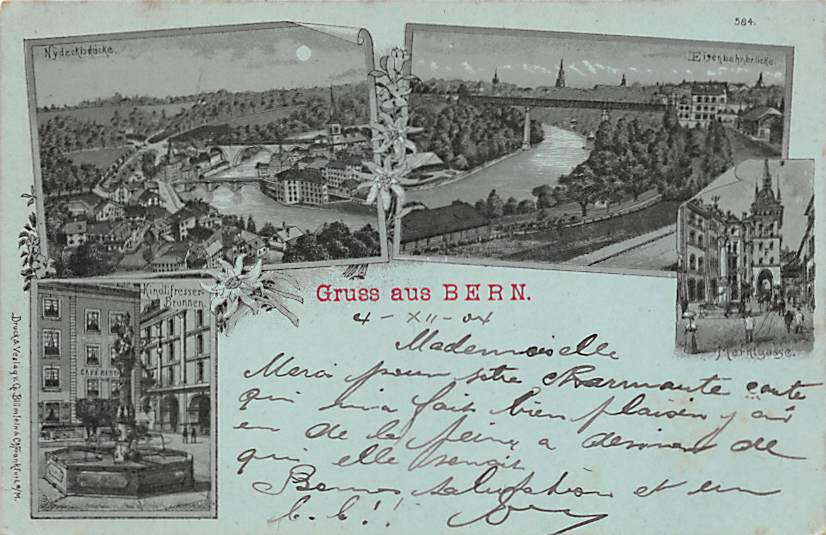 564.
Nydeckbrücke.
Eisenbahnbrücke.
Kindlifresser-
Brunnen.
CAFÉ REST
Marktgasse.
Gruss aus BERN.
4 - XII - 04
Mademoiselle
Merci pour votre charmante carte
qui m'a fait bien plaisir j'ai
eu de la peine a deviner de
qui elle venait
Bonnes salutation et un
b. b!!
Druck & Verlag v. G. Blümlein & Co. Frankfurt a/M.